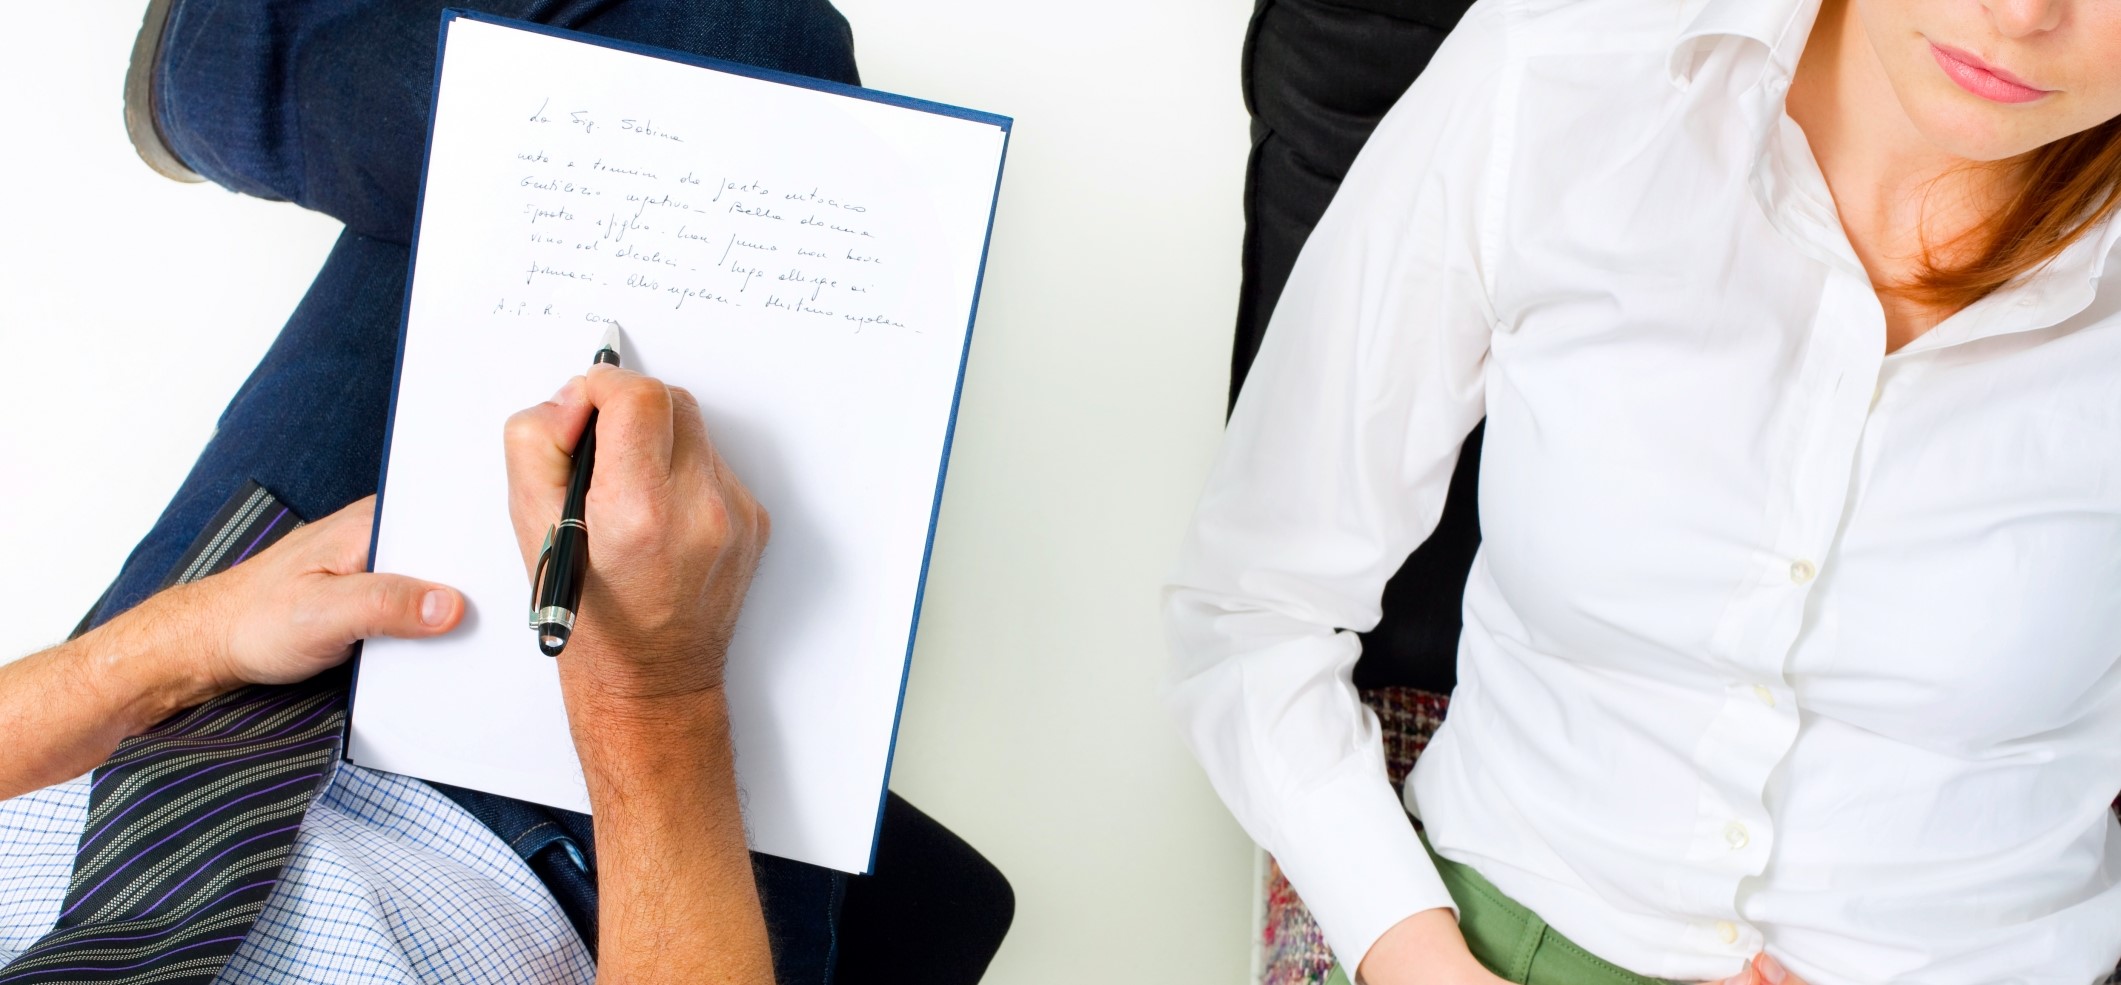 La Sig. Sabina
nata a termine da parto eutocico
Gentilizio negativo - Bella donna
Sposta e figlia. non fuma non beve
vino ed alcolici - nega allergie ai
farmaci - Alvo regolare - diuturno regolare -
A. P. R. com